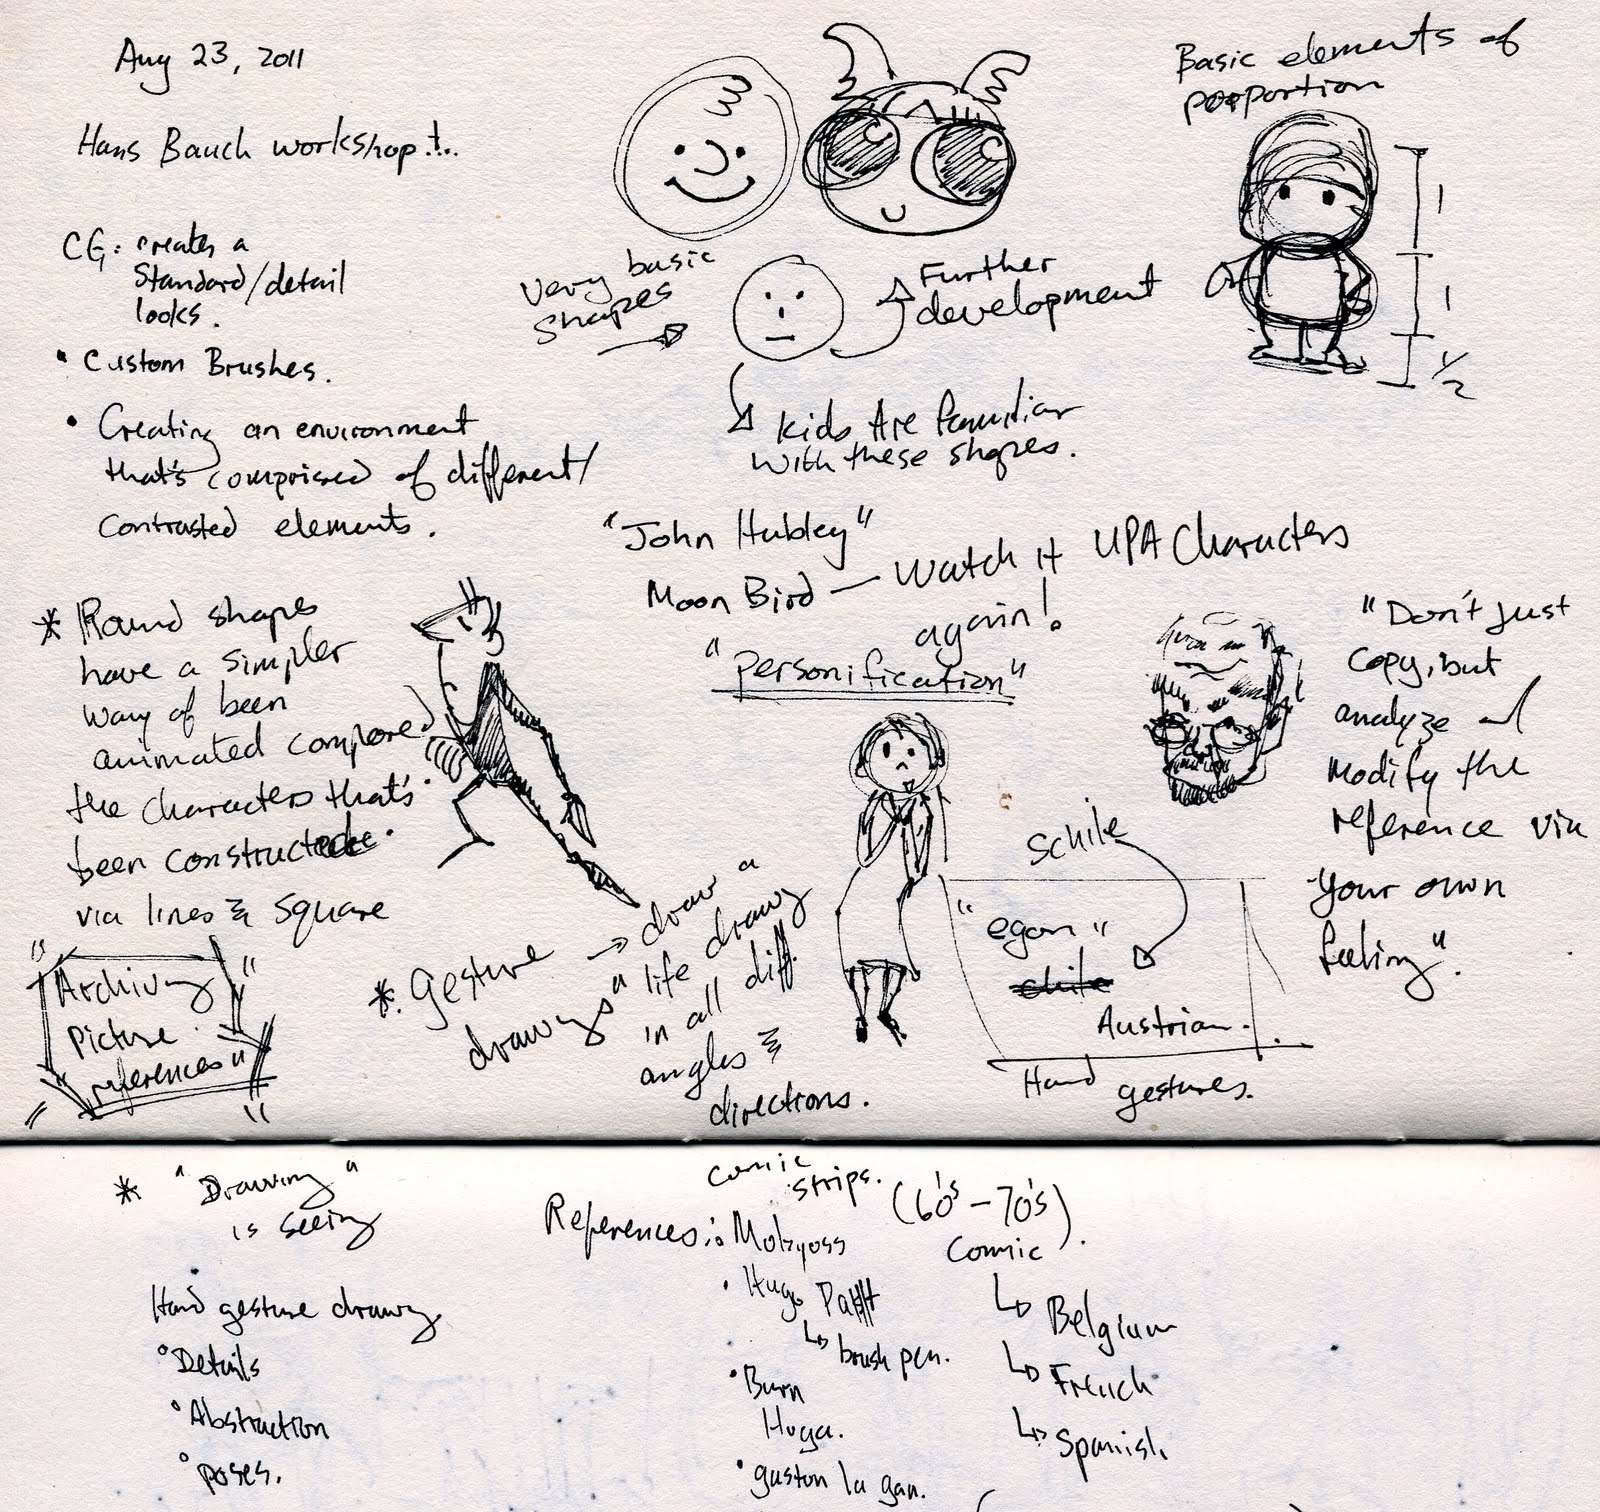 Aug 23, 2011
Hans Bauch workshop!..
CG: creates a
Standard/detail
looks.
• Custom Brushes.
• Creating an environment
that's comprised of different/
contrasted elements.
* Round shapes
have a simpler
way of been
animated compared
the characters that's
been constructed
via lines & square
"Archiving
Picture
references"
Very basic
Shapes
Further
development
Kids Are familiar
with these shapes.
Basic elements of
poportion
1
1
1/2
"John Hubley"
Moon Bird — Watch it
again!
UPA Characters
"personification"
"Don't just
copy, but
analyze and
modify the
reference via
your own
feeling".
* Gesture
drawings
→ draw a
"life drawing"
in all diff.
angles &
directions.
Schile
"egon"
Austrian.
Hand gestures.
* "Drawing"
is seeing
Hand gesture drawing
• Details
• Abstraction
• poses.
Comic
strips.
(60's - 70's)
Comic
References: Mobyoss
• Hugo Patt
↳ brush pen.
• Burn
Hoga.
• gaston la gan.
↳ Belgium
↳ French
↳ Spanish